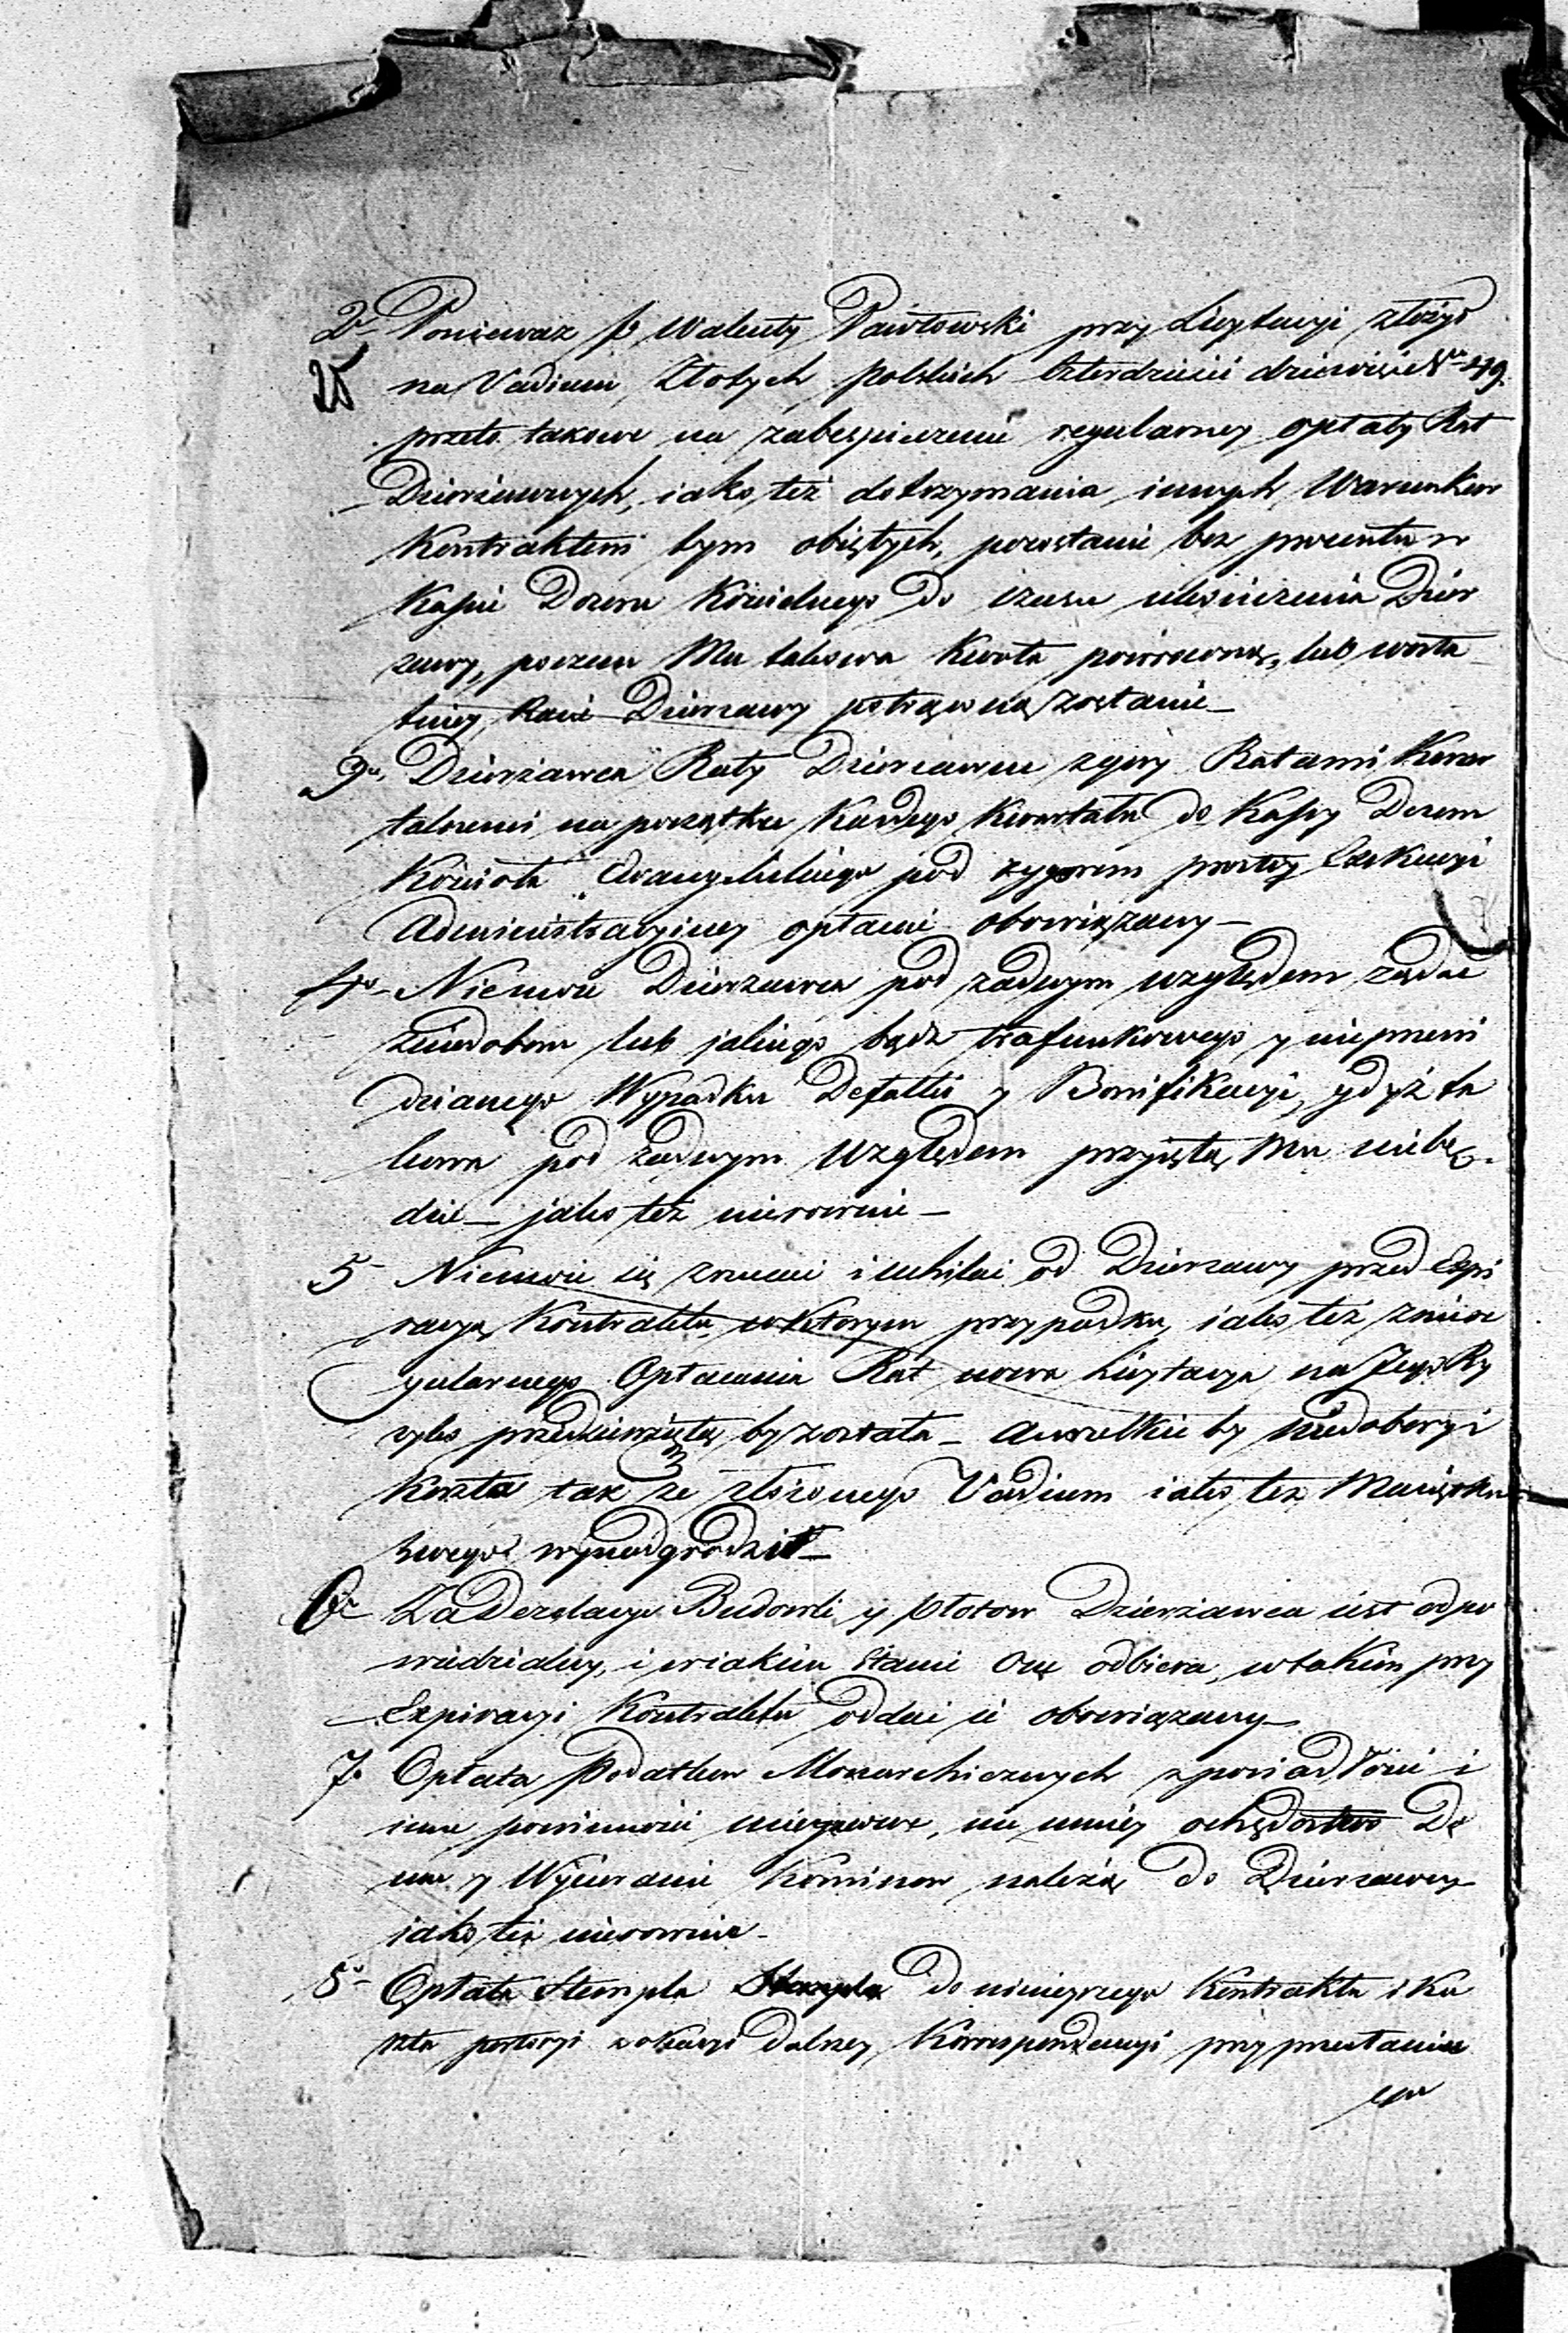 2o Ponieważ p Walenty Pawłowski przy Licytacyi złożył
25 na Vadium Złotych polskich czterdzieści dziewięć 49.
przeto takowe na zabespieczenie regularney opłaty Rat
Dzierżawnych, iako też dotrzymania innych Warunkow
Kontraktem tym obiętych, pozostanie bez procentu w
Kassie Dozoru Kościelnego do czasu ukończenia Dzier
zawy, poczem Mu takowa Kwota powrocona, lub w osta
tniey Racie Dzierzawy potrąconą zostanie_
3o Dzierżawca Raty Dzierzawne z gory Ratami Kwar
talnemi na początku Każdego Kwartału do Kassy Dozoru
Kościoła Ewangelickiego pod rygorem prostey Exekucyi
Administracyiney opłacać obowiązany_
4o Niemoże Dzierzawca pod żadnym względem żądać
z niedoboru lub jakiego bądz trafunkowego y nieprzewi
dzianego Wypadku Defalki y Bonifikacyi, gdyż ta
kowa pod żadnym Względem przyiętą Mu niebę
dzie_ jako też nierownie_
5 Niemoże się zrzucać i uchilać od Dzierzawy przed Expi
racyą Kontraktu, w ktorym przypadku, iako też z niere
gularnego Opłacania Rat nowa Licytacya na Jego Ry
zyko przedsięwziętą by została_ a wszelkie by niedobory i
koszta tak ze złożonego Vadium iako też Maiątku
swego wynadgrodził_
6o Za Dezolacye Budowli y płotow Dzierżawca iest odpo
wiedzialny, i w iakim stanie One odbiera, w takim przy
Expiracyi Kontraktu oddać ie obowiązany_
7o Opłata podatkow Monarchicznych z posiadłości i
inne powinności mieyscowe, nie mniey ochędostwo Do
mu y Wycieranie Kominow należą do Dzierzawcy
iako też nierownie_
8o Opłata Stempla do ninieyszego Kontraktu i Ko
szta portoryi z okazyi dalszey Korrespondencyi przy